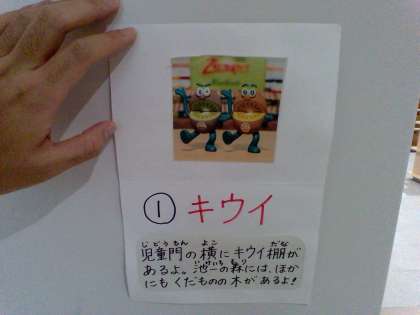 Zespri
① キウイ
児童門の横にキウイ棚が
あるよ。池一の森には、ほか
にもくだものの木があるよ!